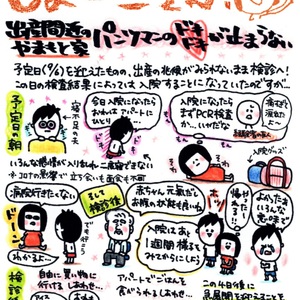 出産間近の
やまもと家
パンツマンのドキドキが止まらない
予定日(9/1)を迎えたものの、出産の兆候がみられないまま検診へ!
この日の検査結果によっては入院することになっていたのですが…
予定日の朝
寝不足の夫
今日入院になったら
さわれはアパートに
ひとり
入院になったら
まずPCR検査
か…。いやだな
いろんな感情が入りまじり
※コロナの影響で立ち会いも面会も不可
入院グッズ
病院行きたくない
ドーン
わかるよ…
そして
検診後
赤ちゃん元気だし
お腹の状態も良いね
入院はあと
1週間様子を
みてからにしましょう
ホッ
帰れる!
よかったぁ
いろんな
意味で
検診後
自由に買い物に
行けるしあわせ…
アパートでごはんを
食べられるしあわせ…
この4日後に